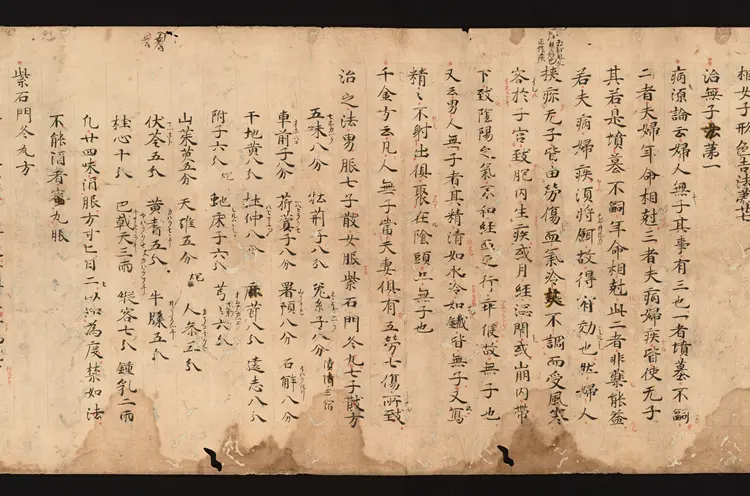 相女子形色吉凶法第廿七
治無子法第一
病源論云婦人無子其事有三也一者墳墓不嗣
二者夫婦年命相尅三者夫病婦疾皆使无子
其若是墳墓不嗣年命相尅此二者非藥能益
若夫病婦疾須將餌故得有効也然婦人
挾疹无子皆由勞傷血氣冷熱不調而受風寒
客於子宮致胞内生疾或月經渋閇或崩内帶
下致陰陽之氣不和經血之行乖候故無子也
又云男人無子者其精清如水冷如鐵皆無子又寫
精〻不射出俱聚在陰頭亦無子也
千金方云凡人無子當夫妻俱有五勞七傷所致
治之法男服七子散女服紫石門冬丸七子散方
五味八分 牡荊子八分 菟絲子八分 漬酒三宿
車前子八分 菥蓂子八分 署預八分 石斛八分
干地黄八分 杜仲八分 鹿茸八分 遠志八分
附子六分炮 虵床子六分 芎六分
山茱萸五分 天雄五分炮 人参五分
伏苓五分 黄耆五分 牛膝五分
桂心十分 巴戟天三兩 縱容七分 鍾乳二兩
凡廿四味酒服方寸匕日二以知為度禁如法
不能酒者蜜丸服
紫石門冬丸方